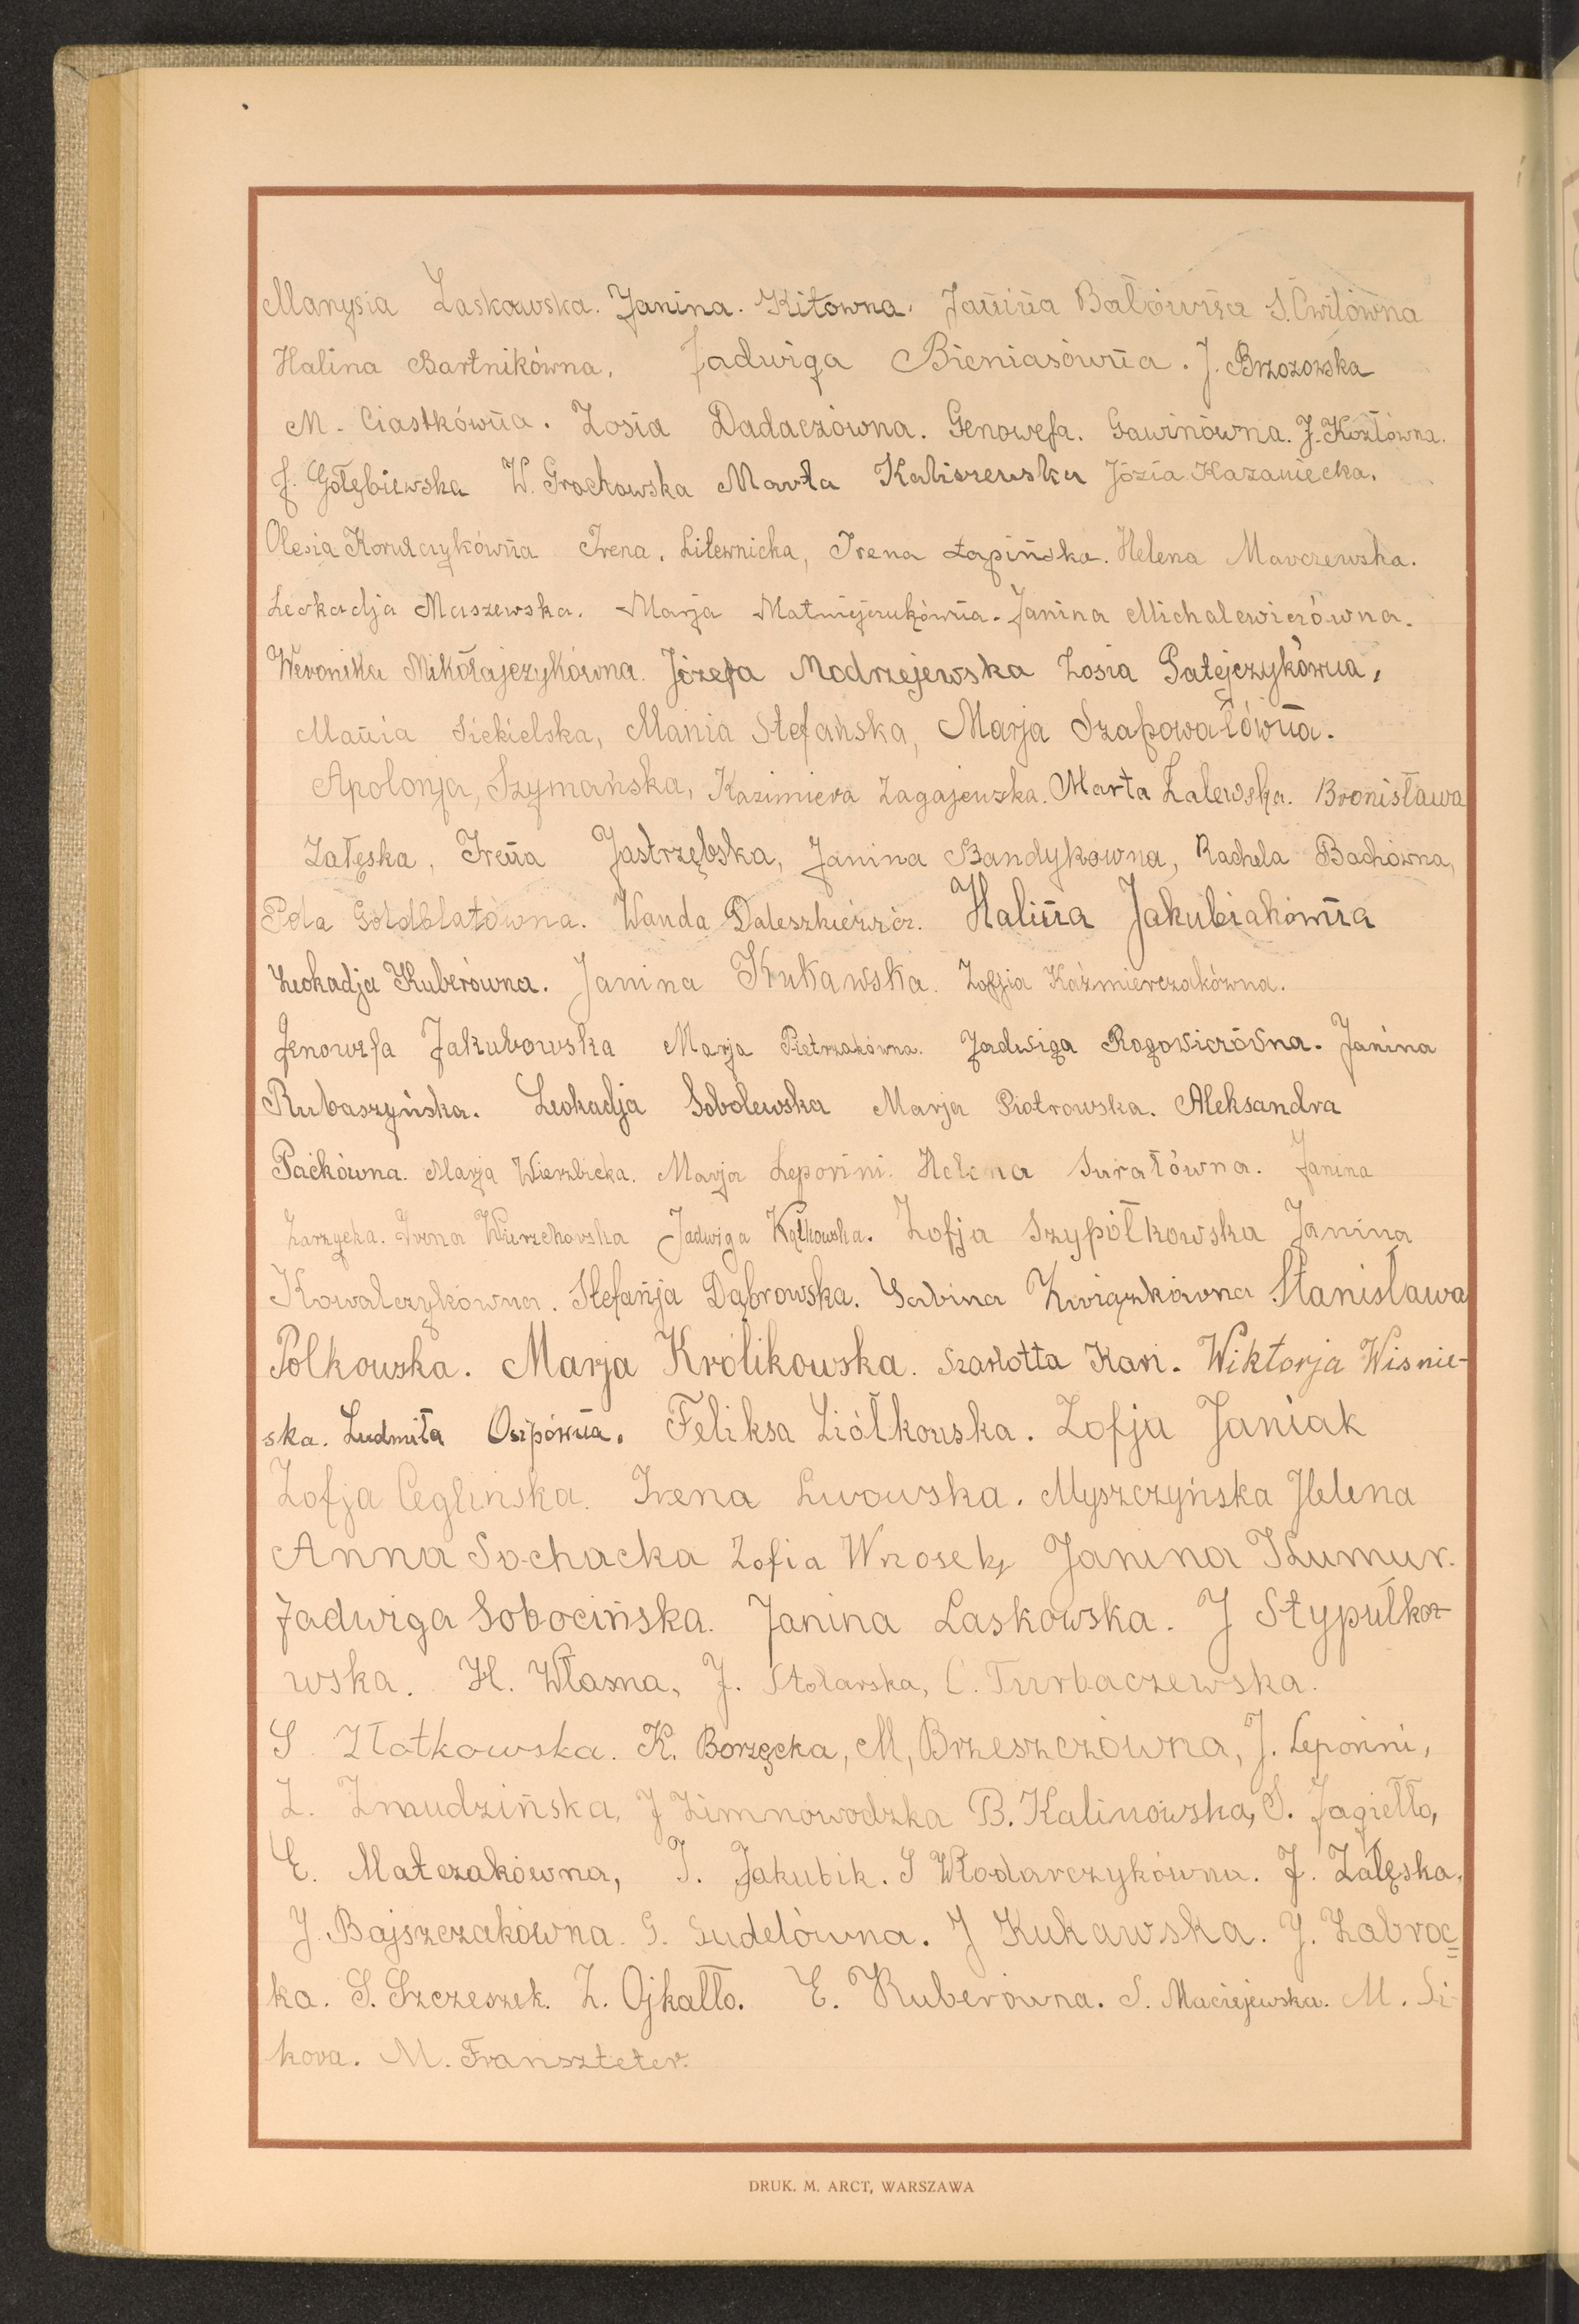 Marysia Laskowska. Janina. Kitowna. Janina Balówna S. Cwilówna
Halina Bartnikówna. Jadwiga Bieniasówna. J. Brzozowska
M. Ciastkówna. Zosia Dadaczówna. Genowefa. Gawinówna. J. Kozłówna.
J. Gołębiewska W. Grochowska Marta Kaliszewska Józia Kazaniecka.
Olesia Korulczykówna Irena. Litewnicka, Irena Łapińska. Helena Marczewska.
Leokadja Maszewska. Marja Matwiejczukówna. Janina Michalewiczówna.
Weronika Mikołajczykówna. Józefa Modrzejewska Zosia Patejczykówna,
Mania Siekielska, Mania Stefańska, Marja Szapowałówna.
Apolonja, Szymańska, Kazimiera Zagajewska. Marta Zalewska. Bronisława
Załęska, Irena Jastrzębska, Janina Bandykowna, Rachela Bachówna,
Pola Goldblatówna. Wanda Daleszkiewicz. Halina Jakubiakówna
Leokadja Kuberówna. Janina Kukawska. Zofja Kaźmierczakówna.
Genowefa Jakubowska Marja Pietrzakówna. Jadwiga Rogowiczówna. Janina
Rubaszyńska. Leokadja Sobolewska Marja Piotrowska. Aleksandra
Paćkówna. Marja Wierzbicka. Marja Leporini. Helena Surałówna. Janina
Zarzycka. Irena Wierzchowska Jadwiga Kątkowska. Zofja Szypółkowska Janina
Kowalczykówna. Stefanja Dąbrowska. Sabina Związkówna Stanisława
Polkowska. Marja Królikowska. Szarlotta Kari. Wiktorja Wisnie-
ska. Ludmiła Osipówna. Feliksa Ziółkowska. Zofja Janiak
Zofja Ceglinska. Irena Lwowska. Myszczyńska Helena
Anna Sochacka Zofia Wrosek, Janina Kumur.
Jadwiga Sobocińska. Janina Laskowska. J Stypułko-
wska. H. Własna, J. Stolarska, C. Turbaczewska.
S. Złotkowska. K. Borzęcka, M, Brzeszczówna, J. Leporini,
Z. Żmudzińska, J Zimnowodzka B. Kalinowska, S. Jagiełło,
E. Matczakówna, J. Jakubik. S Włodarczykówna. J. Załęska,
J. Bajszczakówna. G. Gudelówna. J Kukawska. J. Zabroc=
ka. S. Szczeszek. Z. Ojkałło. E. Kuberówna. S. Maciejewska. M. Si-
kora. M. Franszteter.
DRUK. M. ARCT, WARSZAWA